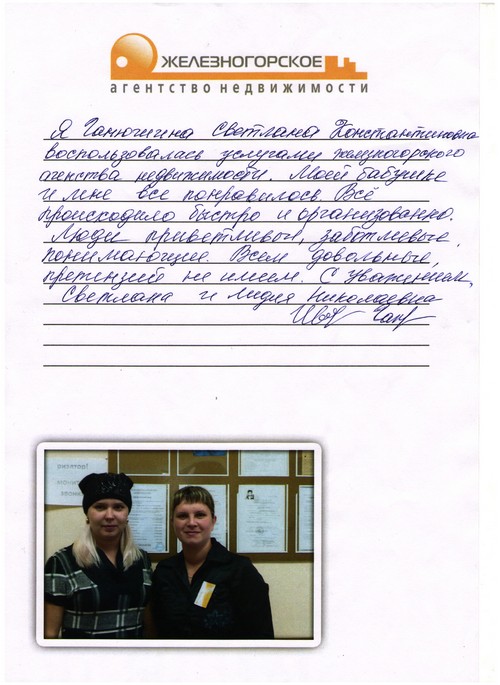 ЖЕЛЕЗНОГОРСКОЕ
агентство недвижимости
Я Ганюшкина Светлана Константиновна
воспользовалась услугами железногорского
агенства недвижимости. Моей бабушке
и мне все понравилось. Всё
происходило быстро и организованно.
Люди приветливые, заботливые,
понимающие. Всем довольные,
претензий не имеем. С уважением,
Светлана и Лидия Николаевна